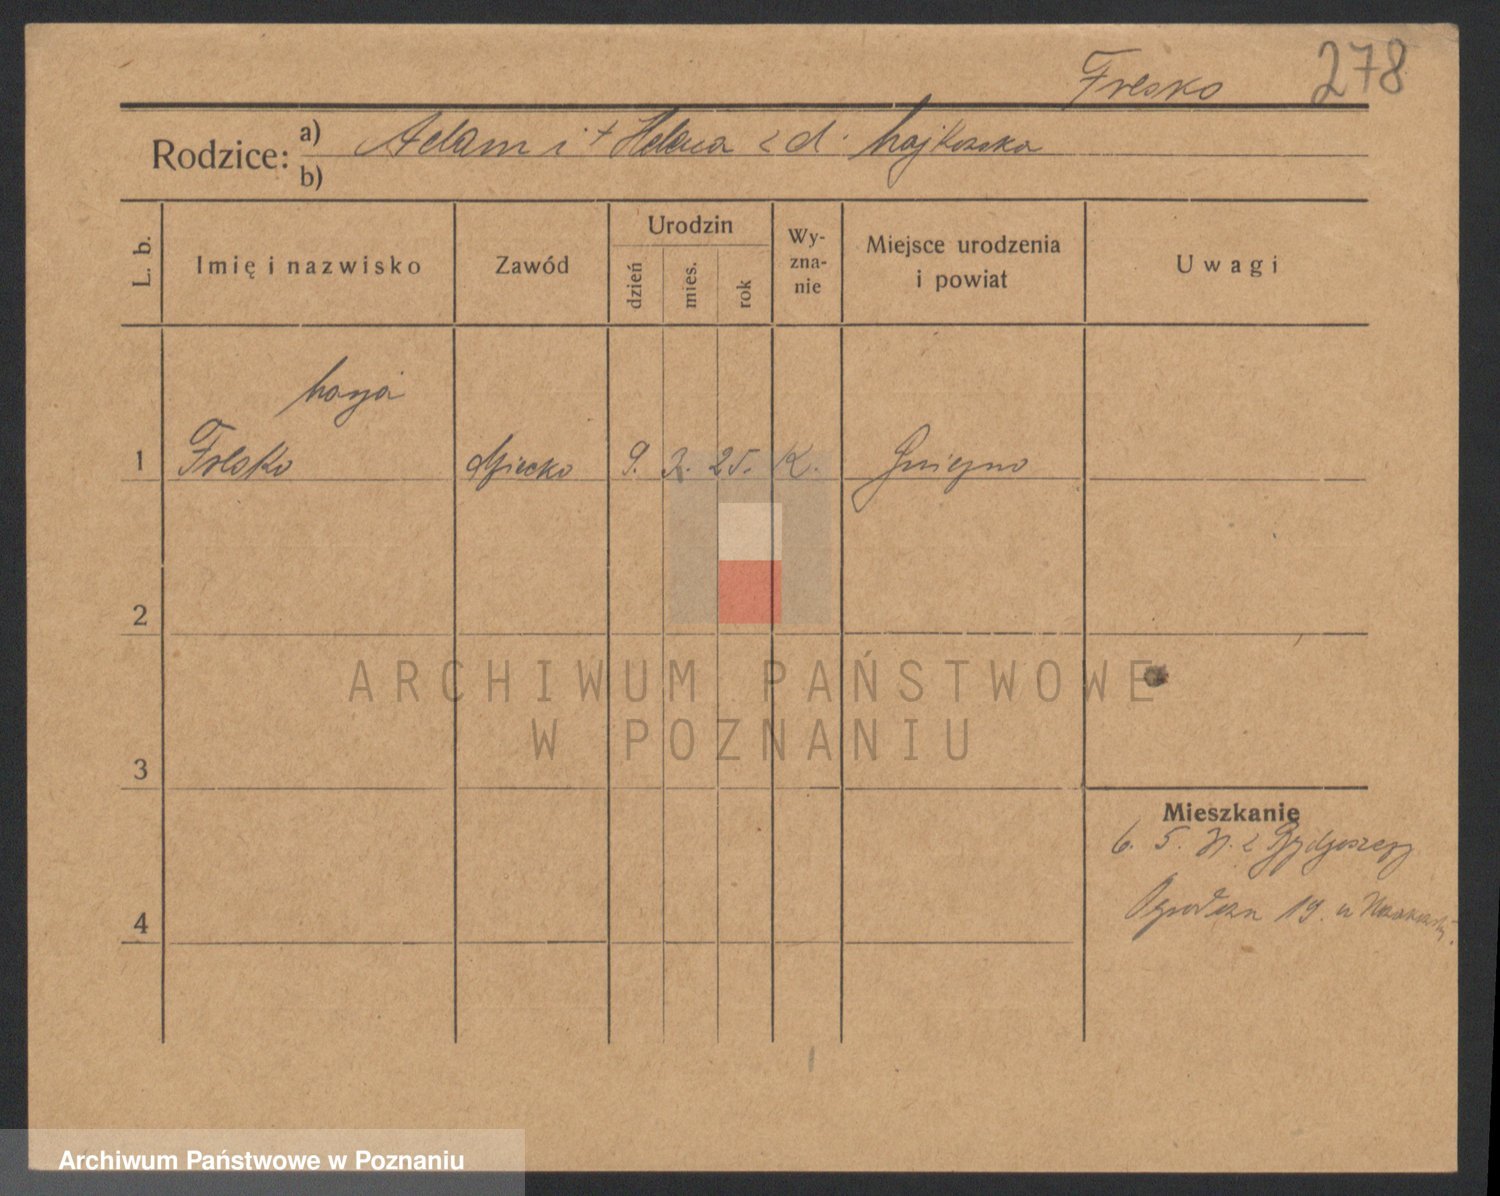 278
Fresko
Rodzice: a) Adam i + Helena z d.
b)
L. b.
Imię i nazwisko
Zawód
Urodzin
dzień
mies.
rok
Wy-
zna-
nie
Miejsce urodzenia
i powiat
Uwagi
Marja
1 Fresko dziecko 9. 3. 25. K. Gniezno
2
3
4
Mieszkanie
6. 5. z Bydgoszczy
19. u
ARCHIWUM PAŃSTWOWE
W POZNANIU
Archiwum Państwowe w Poznaniu